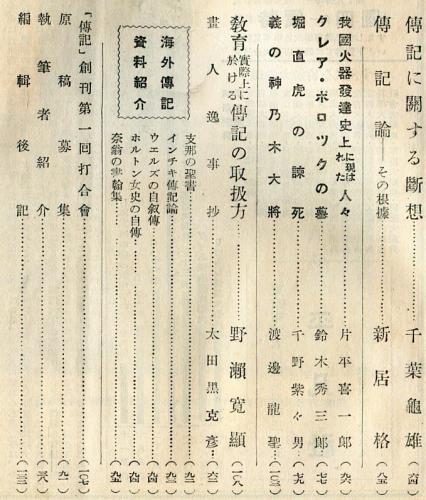 傳記に關する斷想……千葉龜雄
傳記論 その根據……新居格
我國火器發達史上に現はれた人々……片平喜一郎
クレア・ボロツクの墓……鈴木秀三郎
堀直虎の諫死……千野紫々男
義の神乃木大將……渡邊龍聖
教育實際上に於ける傳記の取扱方……野瀨寬顯(一〇八)
畫人逸事抄……太田黑克彥
海外傳記資料紹介
支那の聖書
インチキ傳記論
ウエルズの自叙傳
ホルトン女史の自傳
奈翁の書翰集
「傳記」創刊第一回打合會……(一〇七)
原稿募集
執筆者紹介
編輯後記